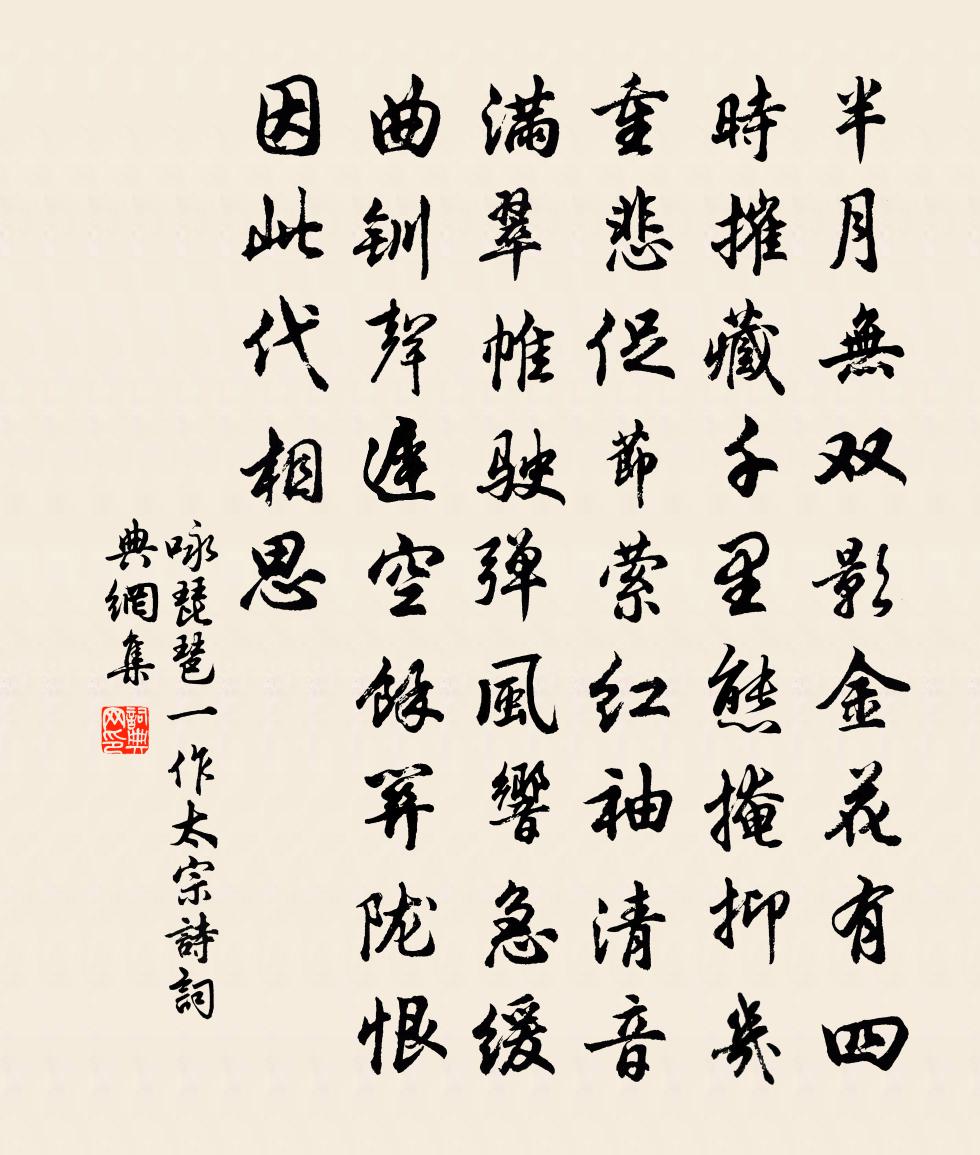 半月無双影金花有四
時摧藏千里態掩抑幾
重悲促節縈红袖清音
滿翠帷駛弹風響急緩
曲釧聲遲空餘關陇恨
因此代相思
咏琵琶一作太宗詩詞
典網集
詞典網印